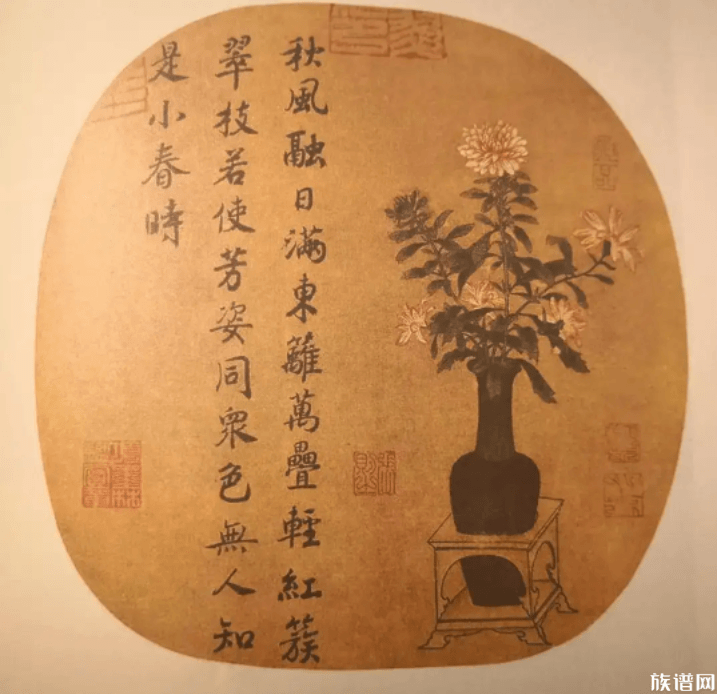 秋風融日滿東籬萬疊輕紅簇
翠枝若使芳姿同衆色無人知
是小春時
族谱网